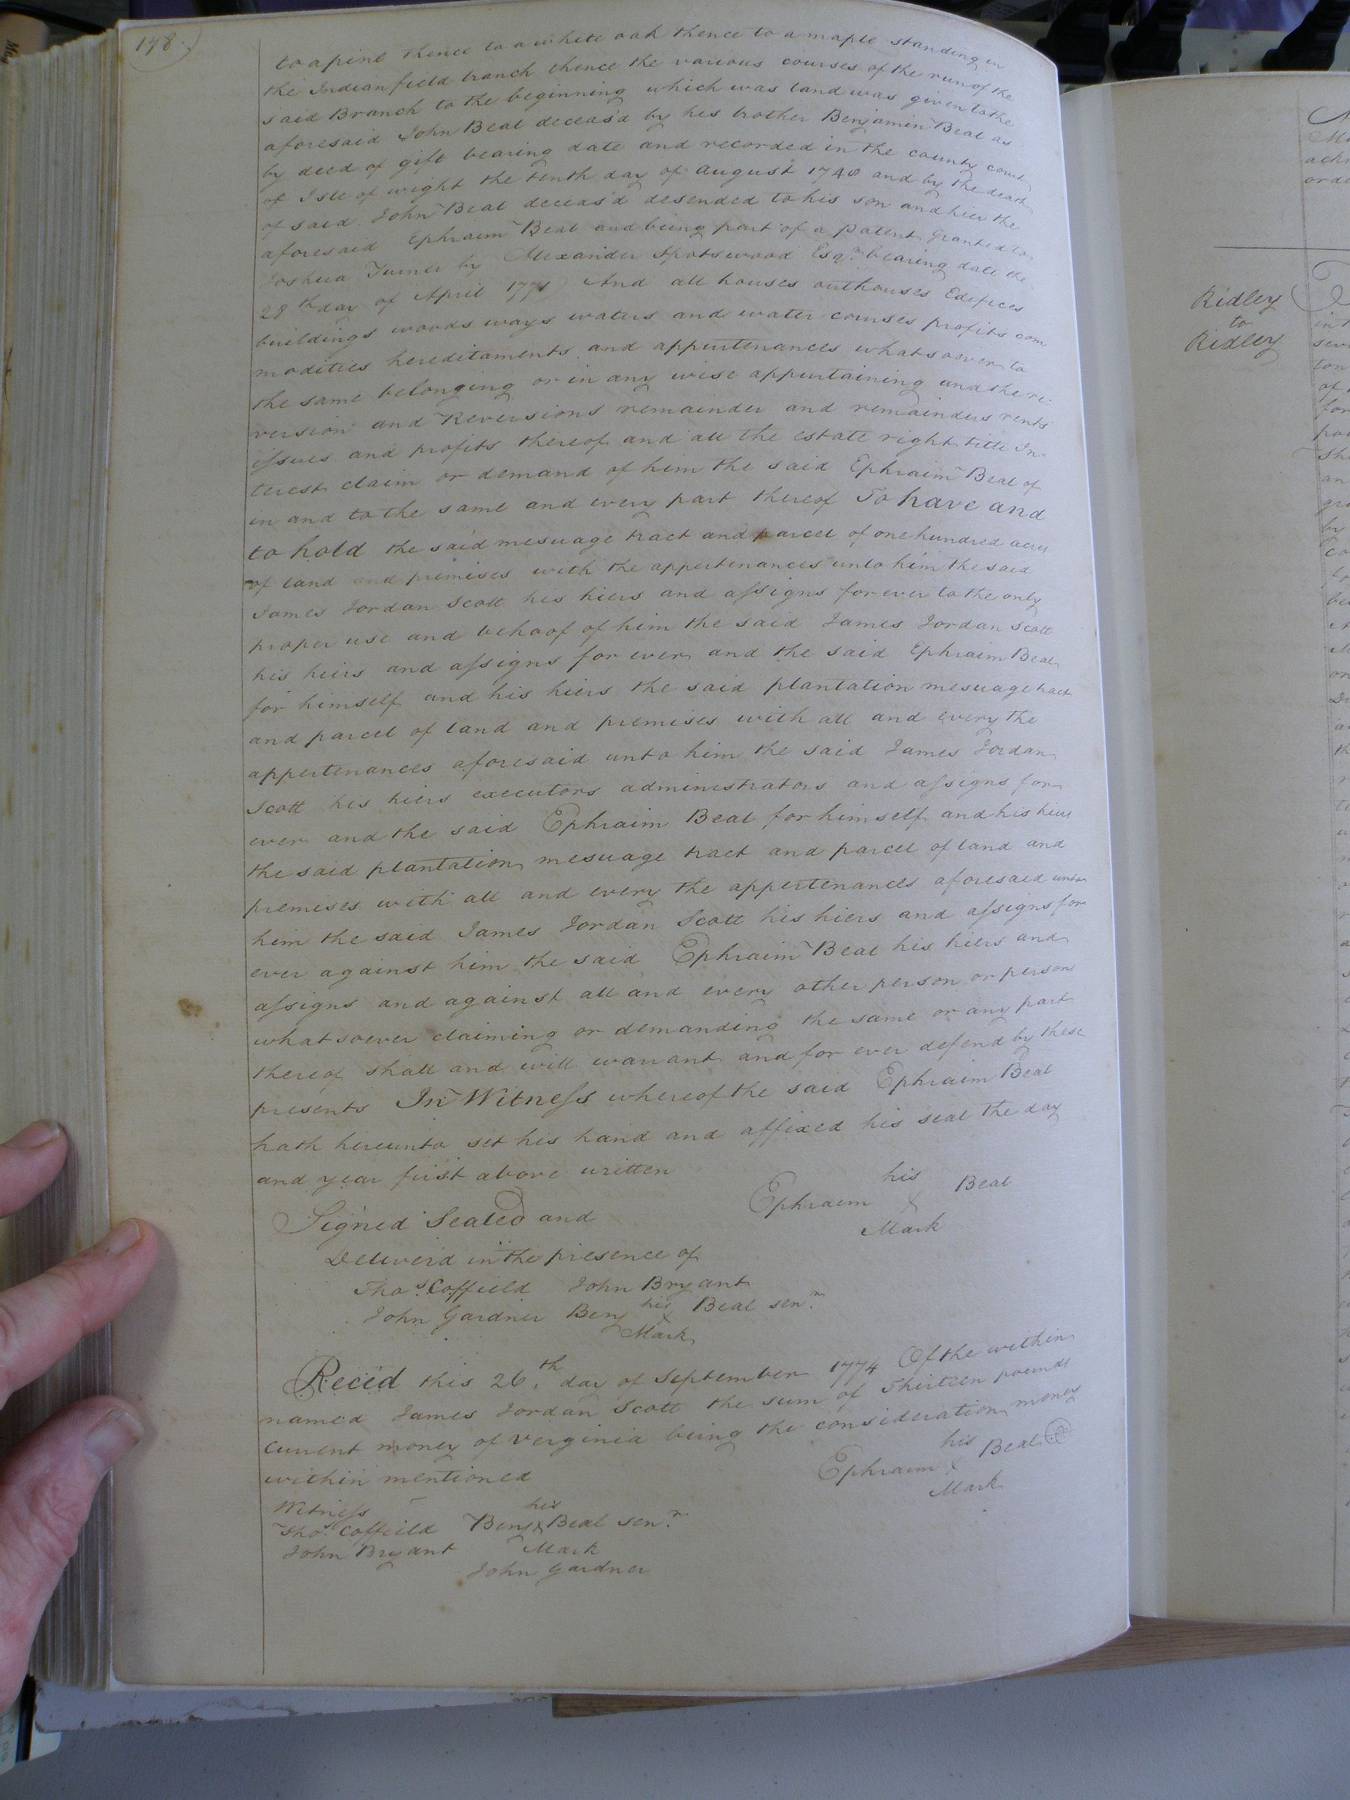 178.
to a pine thence to a white oak thence to a maple standing in
the Indian field branch thence the various courses of the run of the
said Branch to the beginning which was land was given to the
aforesaid John Beal deceas'd by his brother Benjamin Beal as
by deed of gift bearing date and recorded in the county court
of Isle of wight the tenth day of august 1748 and by the death
of said John Beal deceas'd desended to his son and heir the
aforesaid Ephraim Beal and being part of a patent Granted to
Joshua Turner by Alexander Spotswood Esqr. bearing date the
28th day of April And all houses outhouses Edifices
buildings woods ways waters and water courses profits com
modities hereditaments and appurtenances whatsoever to
the same belonging or in any wise appurtaining and the re-
version and Reversions remainder and remainders rents
issues and profits thereof and all the estate right title In-
terest claim or demand of him the said Ephraim Beal of
in and to the same and every part thereof To have and
to hold the said mesuage tract and parcel of one hundred acres
of land and premises with the appertenances unto him the said
James Jordan Scott his hiers and assigns for ever to the only
proper use and behoof of him the said James Jordan Scott
his hiers and assigns for ever and the said Ephraim Beal
for himself and his hiers the said plantation mesuage tract
and parcel of land and premises with all and every the
appertenances aforesaid unto him the said James Jordan
Scott his hiers executors administrators and assigns for
ever and the said Ephraim Beal for himself and his hiers
the said plantation mesuage tract and parcel of land and
premises with all and every the appertenances aforesaid unto
him the said James Jordan Scott his hiers and assigns for
ever against him the said Ephraim Beal his hiers and
assigns and against all and every other person or persons
whatsoever claiming or demanding the same or any part
thereof shall and will warrant and for ever defend by these
presents In Witness whereof the said Ephraim Beal
hath hereunto set his hand and affixed his seal the day
and year first above written
his
Ephraim X Beal
Mark
Signed Sealed and
Deliver'd in the presence of
Thos. Coffield John Bryant
John Gardner Benj his X Beal senr.
Mark
Rec'ed this 26th. day of September 1774 Of the within
named James Jordan Scott the sum of Thirteen pounds
current money of Verginia being the consideration money
within mentioned
his
Ephraim X Beal
Mark
Witness
his
Thos. Coffield Benj X Beal senr.
John Bryant Mark
John Gardner
Ridley
to
Ridley